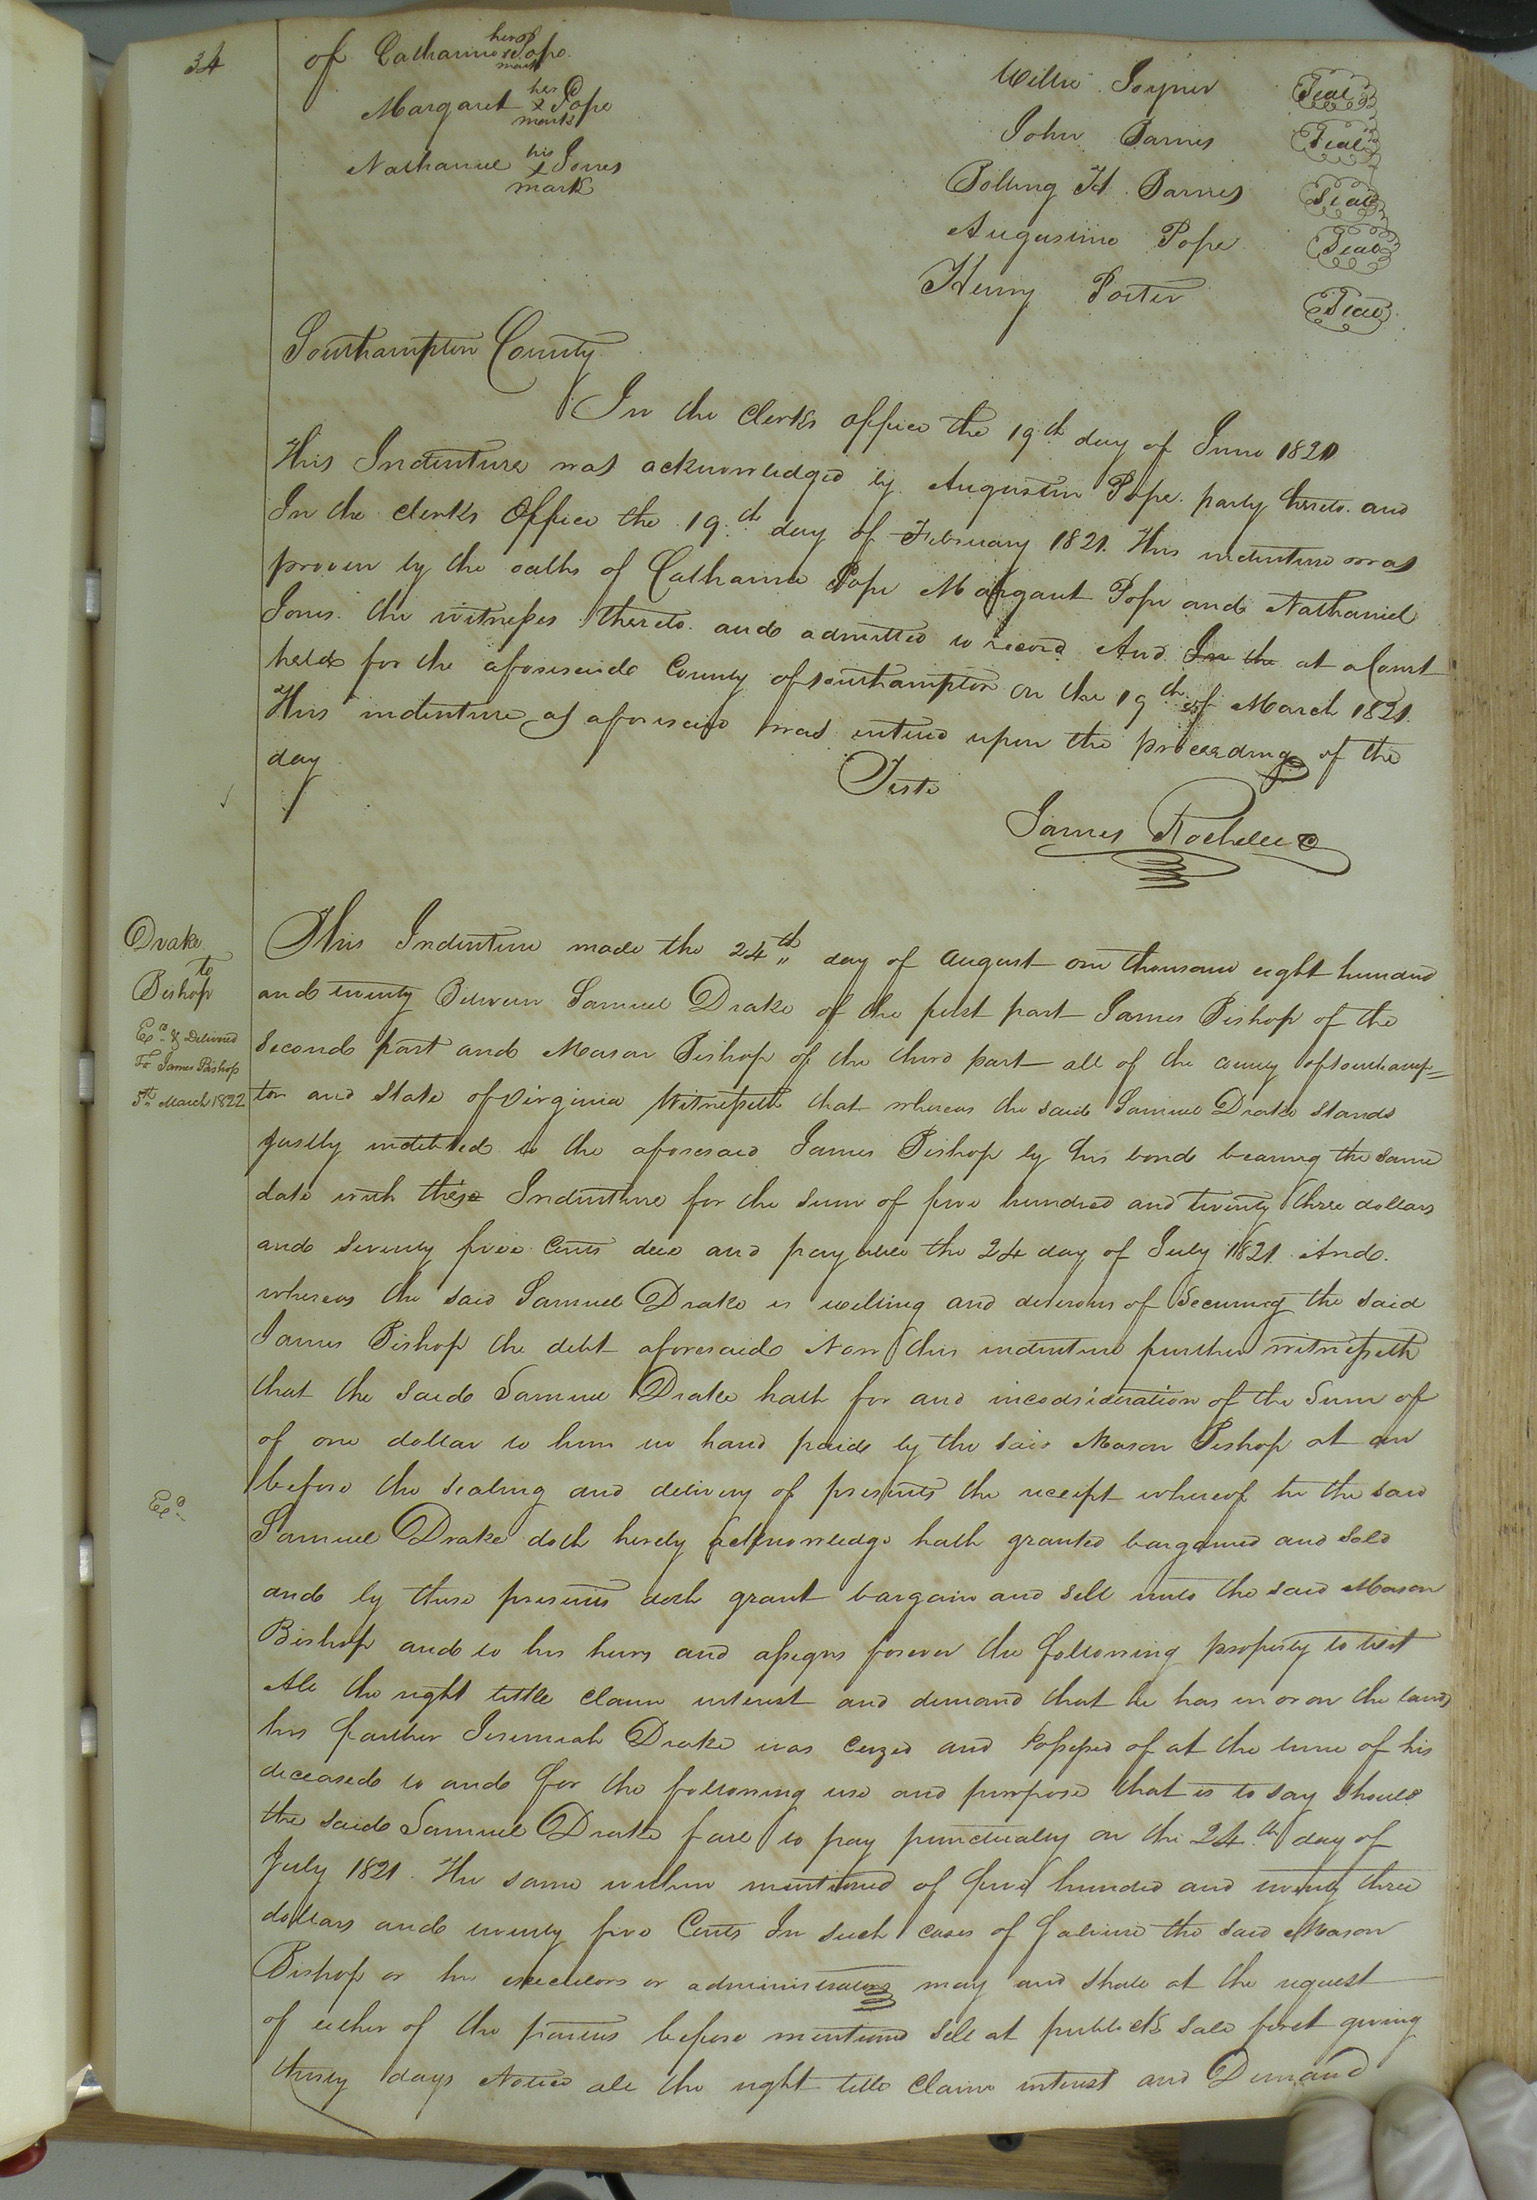 34
of Catharine her x mark Pope
Margaret her x mark Pope
Nathaniel his x mark Jones
Willie Joyner Seal
John Barnes Seal
Bolling H. Barnes Seal
Augustine Pope Seal
Henry Porter Seal
Southampton County
In the Clerks office the 19th day of June 1821
This Indenture was acknowledged by Augustin Pope party thereto and
In the clerks Office the 19th day of February 1821. This indenture was
proven by the oaths of Catharine Pope Margaret Pope and Nathaniel
Jones the witnesses thereto and admitted to record And In the at a Court
held for the aforesaid County of Southampton on the 19th of March 1821.
This indenture as aforesaid was entered upon the proceedings of the
day
Teste
James Rochelle C
Drake
to
Bishop
Exd. & Delivered
To James Bishop
5th March 1822
This Indenture made the 24th day of August one thousand eight hundred
and twenty Between Samuel Drake of the first part James Bishop of the
Second part and Mason Bishop of the third part all of the county of Southamp=
ton and State of Virginia Witnesseth that whereas the said Samuel Drake stands
justly indebted to the aforesaid James Bishop by his bond bearing the same
date with these Indenture for the sum of five hundred and twenty three dollars
and seventy five Cents due and payable the 24 day of July 1821. And
whereas the said Samuel Drake is willing and desirous of Securing the said
James Bishop the debt aforesaid Now this indenture further witnesseth
that the said Samuel Drake hath for and inconsideration of the Sum of
of one dollar to him in hand paid by the said Mason Bishop at an
before the sealing and delivery of presents the receipt whereof he the said
Exd.
Samuel Drake doth hereby acknowledge hath granted bargained and sold
and by these presents doth grant bargain and sell unto the said Mason
Bishop and to his heirs and assigns forever the following property to wit
All the right tittle claim interest and demand that he has in or on the land
his father Jeremiah Drake was ceized and Possessed of at the time of his
deceased to and for the following use and purpose that is to say should
the said Samuel Drake fail to pay punctually on the 24th day of
July 1821. The same within mentioned of five hundred and twenty three
dollars and twenty five Cents In such cases of failure the said Mason
Bishop or his executors or administrators may and shall at the request
of either of the parties before mentioned sell at publick sale first giving
thirty days Notice all the right title claim interest and Demand